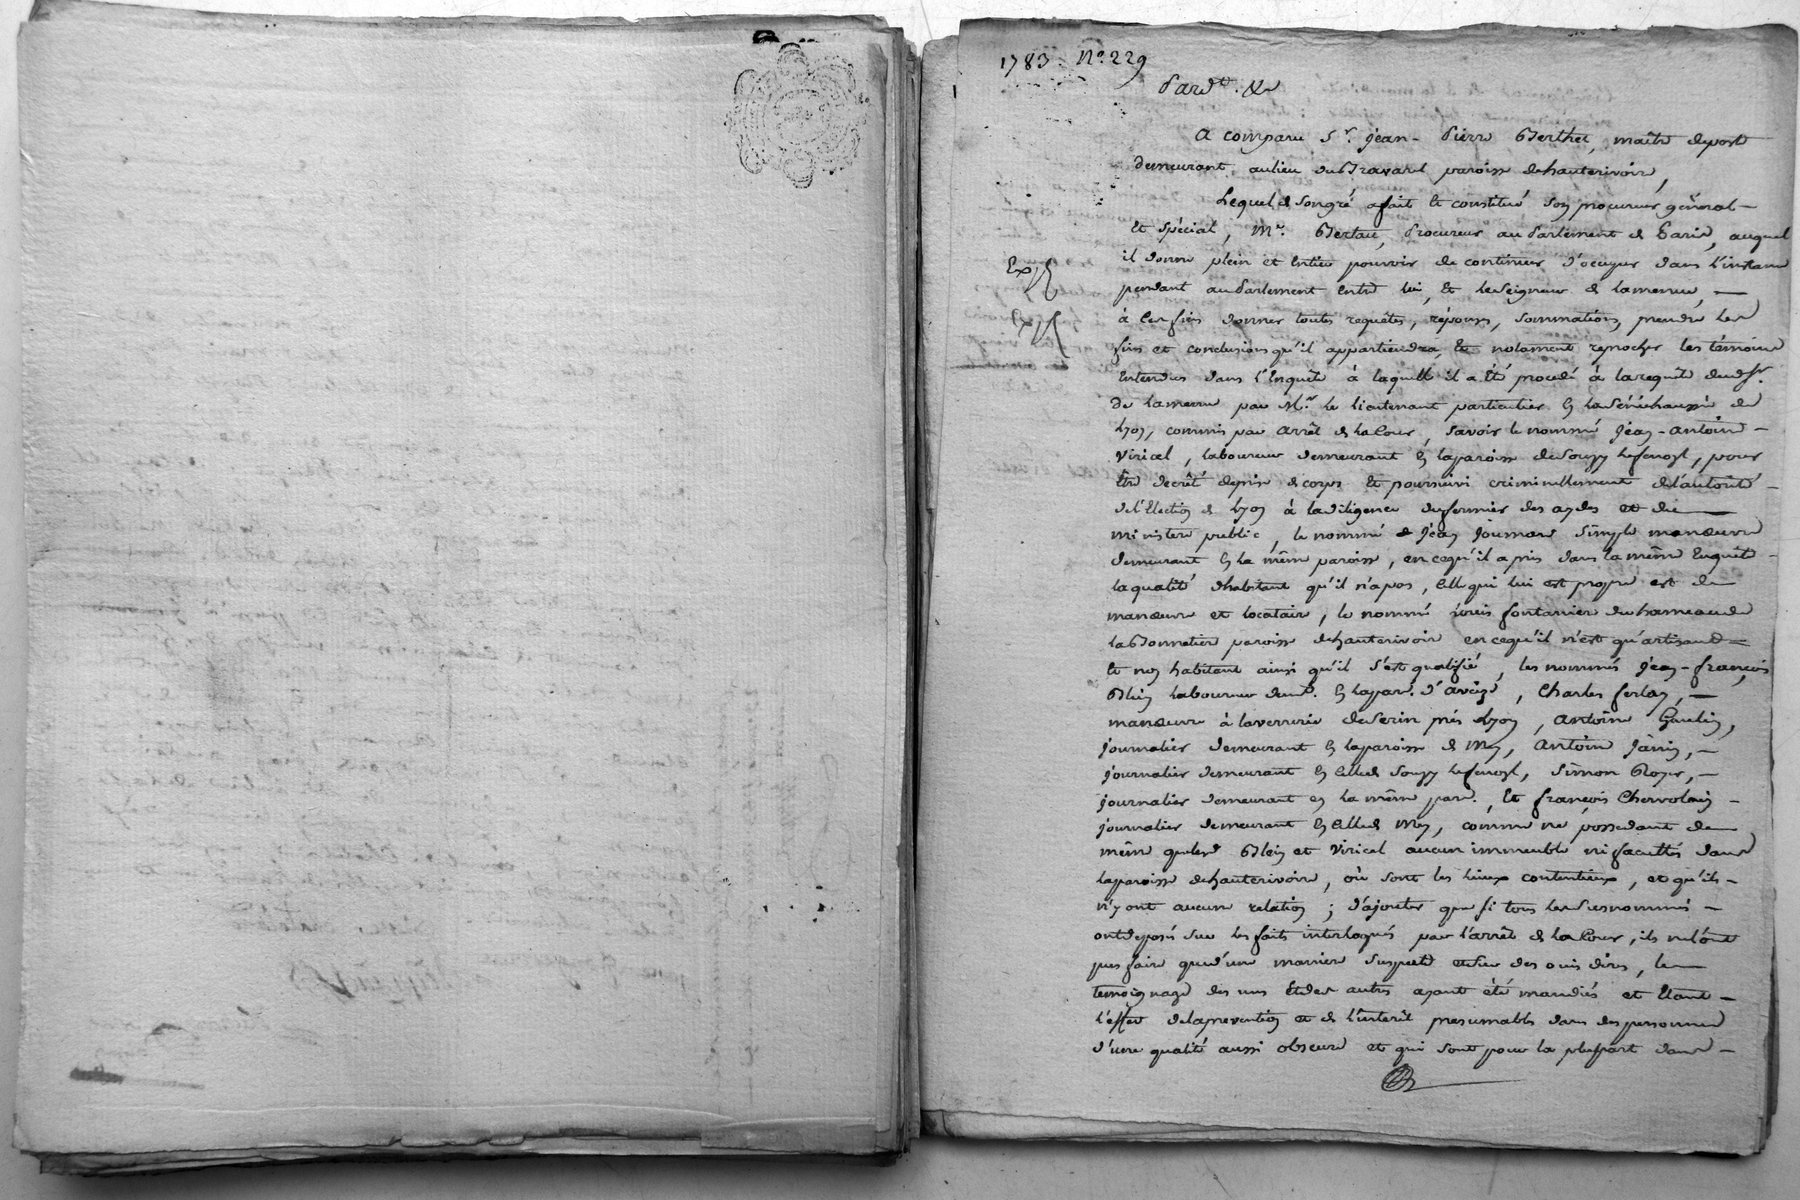 1783. N.° 229
Pard.t &a
A comparu S.r jean-Pierre Berthet, maître de poste
demeurant au lieu du Bravard paroisse dehauterivoire,
Lequel de son gré a fait et constitué son procureur général
et spécial, M.e Procureur au Parlement de Paris, auquel
il donne plein et entier pouvoir de continuer d'occuper dans l'instance
Exp
pendant au Parlement entre lui, et le Seigneur de lamenue,
à ces fins donner toutes requêtes, réponses, sommations, prendre les
Exp
fins et conclusions qu'il appartiendra, et notament reprocher les témoins
Entendus dans l'Enquête à laquelle il a été procédé à la requête dud. Sr.
de lamenue par M.r le lieutenant particulier en la Sénéchaussée de
Lyon, commis par arrêt de la Cour, savoir le nommé jean-antoine
Viricel, laboureur demeurant en la paroisse de Souzy , pour
Être décrété de prise de corps et poursuivi criminellement de l'autorité
de l'Election de Lyon à la diligence du fermier des aydes et du
ministere public, le nommé jean simple manœuvre
demeurant en la même paroisse, en ce qu'il a pris dans la même Enquête
la qualité d'habitant qu'il n'a pas, celle qui lui est propre est de
manœuvre et locataire, le nommé Louis fontanier du hameau de
la Bonnetier paroisse dehauterivoire en ce qu'il n'est qu'artisan
et non habitant ainsi qu'il s'est qualifié, les nommés jean-françois
Blein laboureur dem.t en la par. d'aveize, Charles ferlay,
manœuvre à la verrerie de Serin près Lyon, antoine Gaulin,
journalier demeurant en la paroisse de Mey, antoine janin,
journalier demeurant en celle de Souzy , Simon Royer,
journalier demeurant en la même par., et françois
journalier demeurant en celle de Mey, comme ne possedant de
même que lesd. Blein et Viricel aucun immeuble ni facultés dans
la paroisse dehauterivoire, où sont les lieux contentieux, et qu'ils
n'y ont aucune relation; d'ajouter que si tous les susnommés
ont déposé sur les faits interloqués par l'arrêt de la Cour, ils ne l'ont
pus faire que d'une maniere suspecte et sur des ouis dires, le
temoignage des uns et des autres ayant été mandiés et étant
l'effet de la prevention et de l'interêt presumable dans des personnes
d'une qualité aussi obscure et qui sont pour la pluspart dans